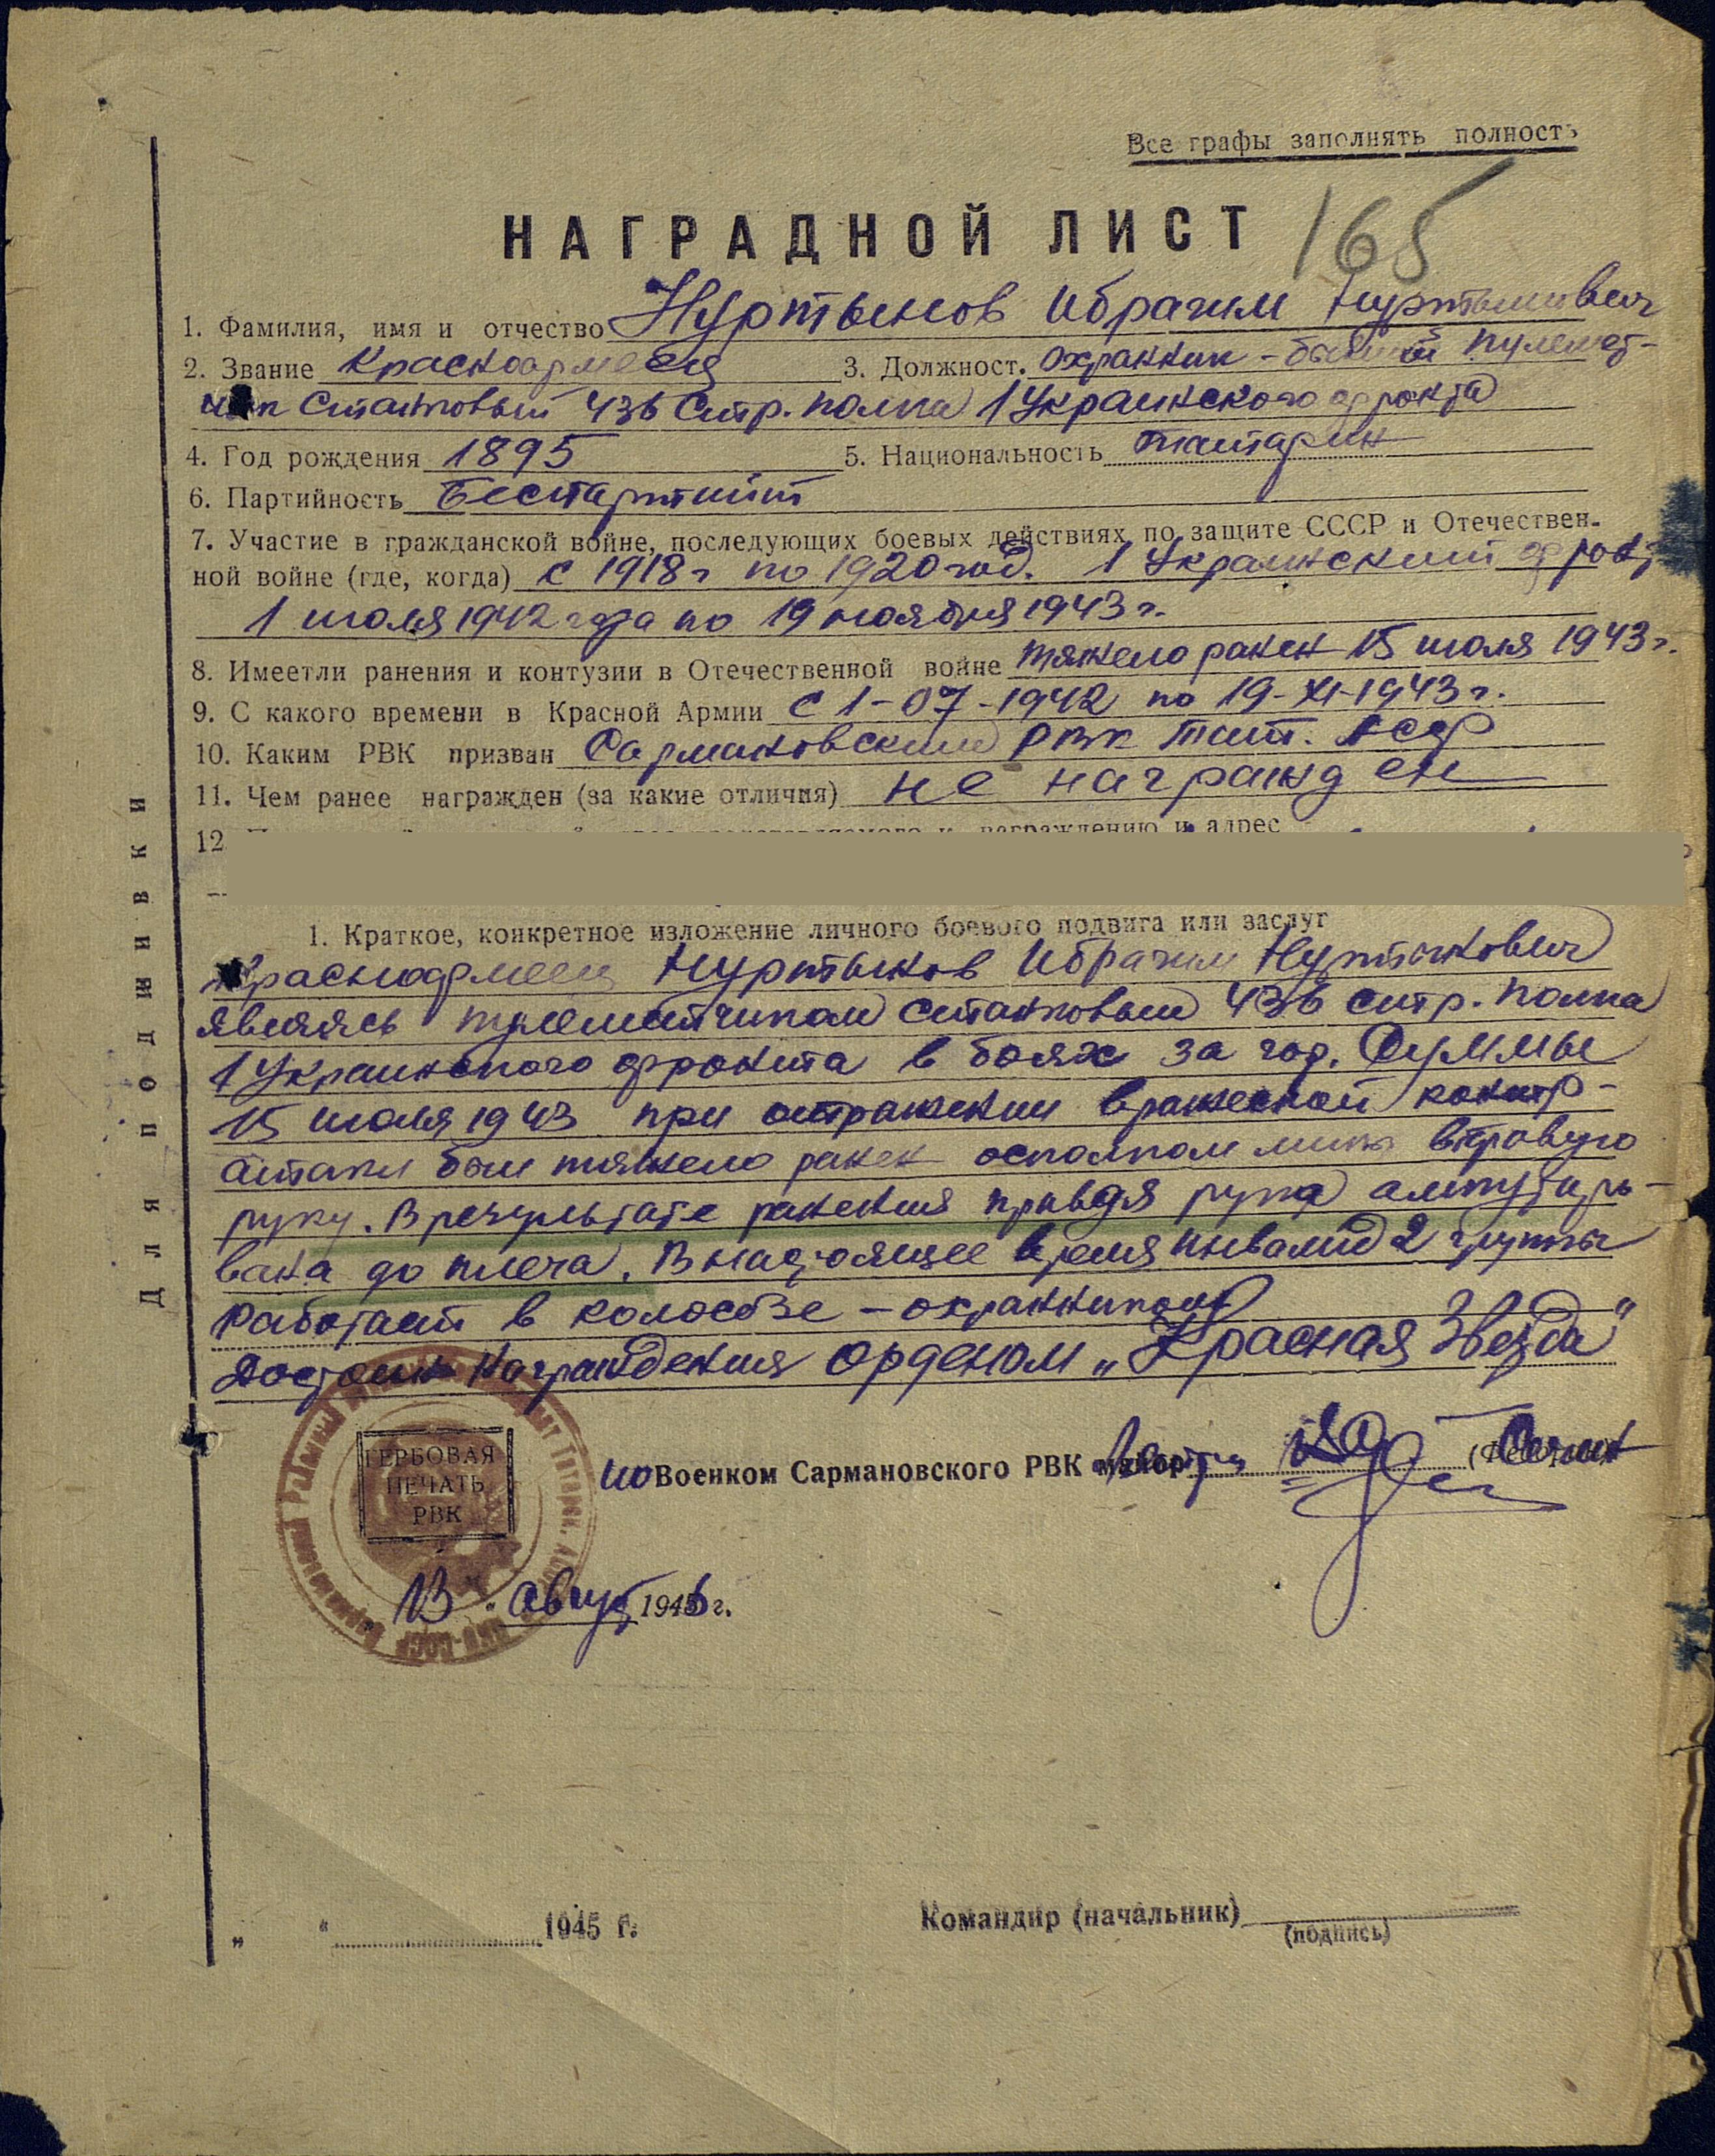 Все графы заполнять полност
НАГРАДНОЙ ЛИСТ 165
1. Фамилия, имя и отчество Нуртынов Ибрагим Нуртынович
2. Звание Красноармеец 3. Должност. охранник - бывший пулемет-
чик станковый 436 стр. полка 1 Украинского фронта
4. Год рождения 1895 5. Национальность татарин
6. Партийность Беспартийный
7. Участие в гражданской войне, последующих боевых действиях по защите СССР и Отечествен-
ной войне (где, когда) с 1918 г по 1920 год. 1 Украинский фронт
1 июля 1942 года по 19 ноября 1943 г.
8. Имеетли ранения и контузии в Отечественной войне тяжело ранен 15 июля 1943 г.
9. С какого времени в Красной Армии с 1-07-1942 по 19-XI-1943 г.
10. Каким РВК призван Сармановским РВК Тат. АССР
11. Чем ранее награжден (за какие отличия) не награжден
12 награждению и адрес
1. Краткое, конкретное изложение личного боевого подвига или заслуг
Красноармеец Нуртынов Ибрагим Нуртынович
являясь пулеметчиком станковым 436 стр. полка
1 Украинского фронта в боях за гор. Суммы
15 июля 1943 при отражении вражеской контр-
атаки был тяжело ранен осколком мины в правую
руку. В результате ранения правая рука ампутиро-
вана до плеча. В настоящее время инвалид 2 группы
работает в колхозе - охранником
Достоин награждения орденом „Красная Звезда"
ГЕРБОВАЯ
ПЕЧАТЬ
РВК
ио Военком Сармановского РВК
13 август 1946 г.
„ " 1945 г. Командир (начальник)
(подпись)
Для подшивки